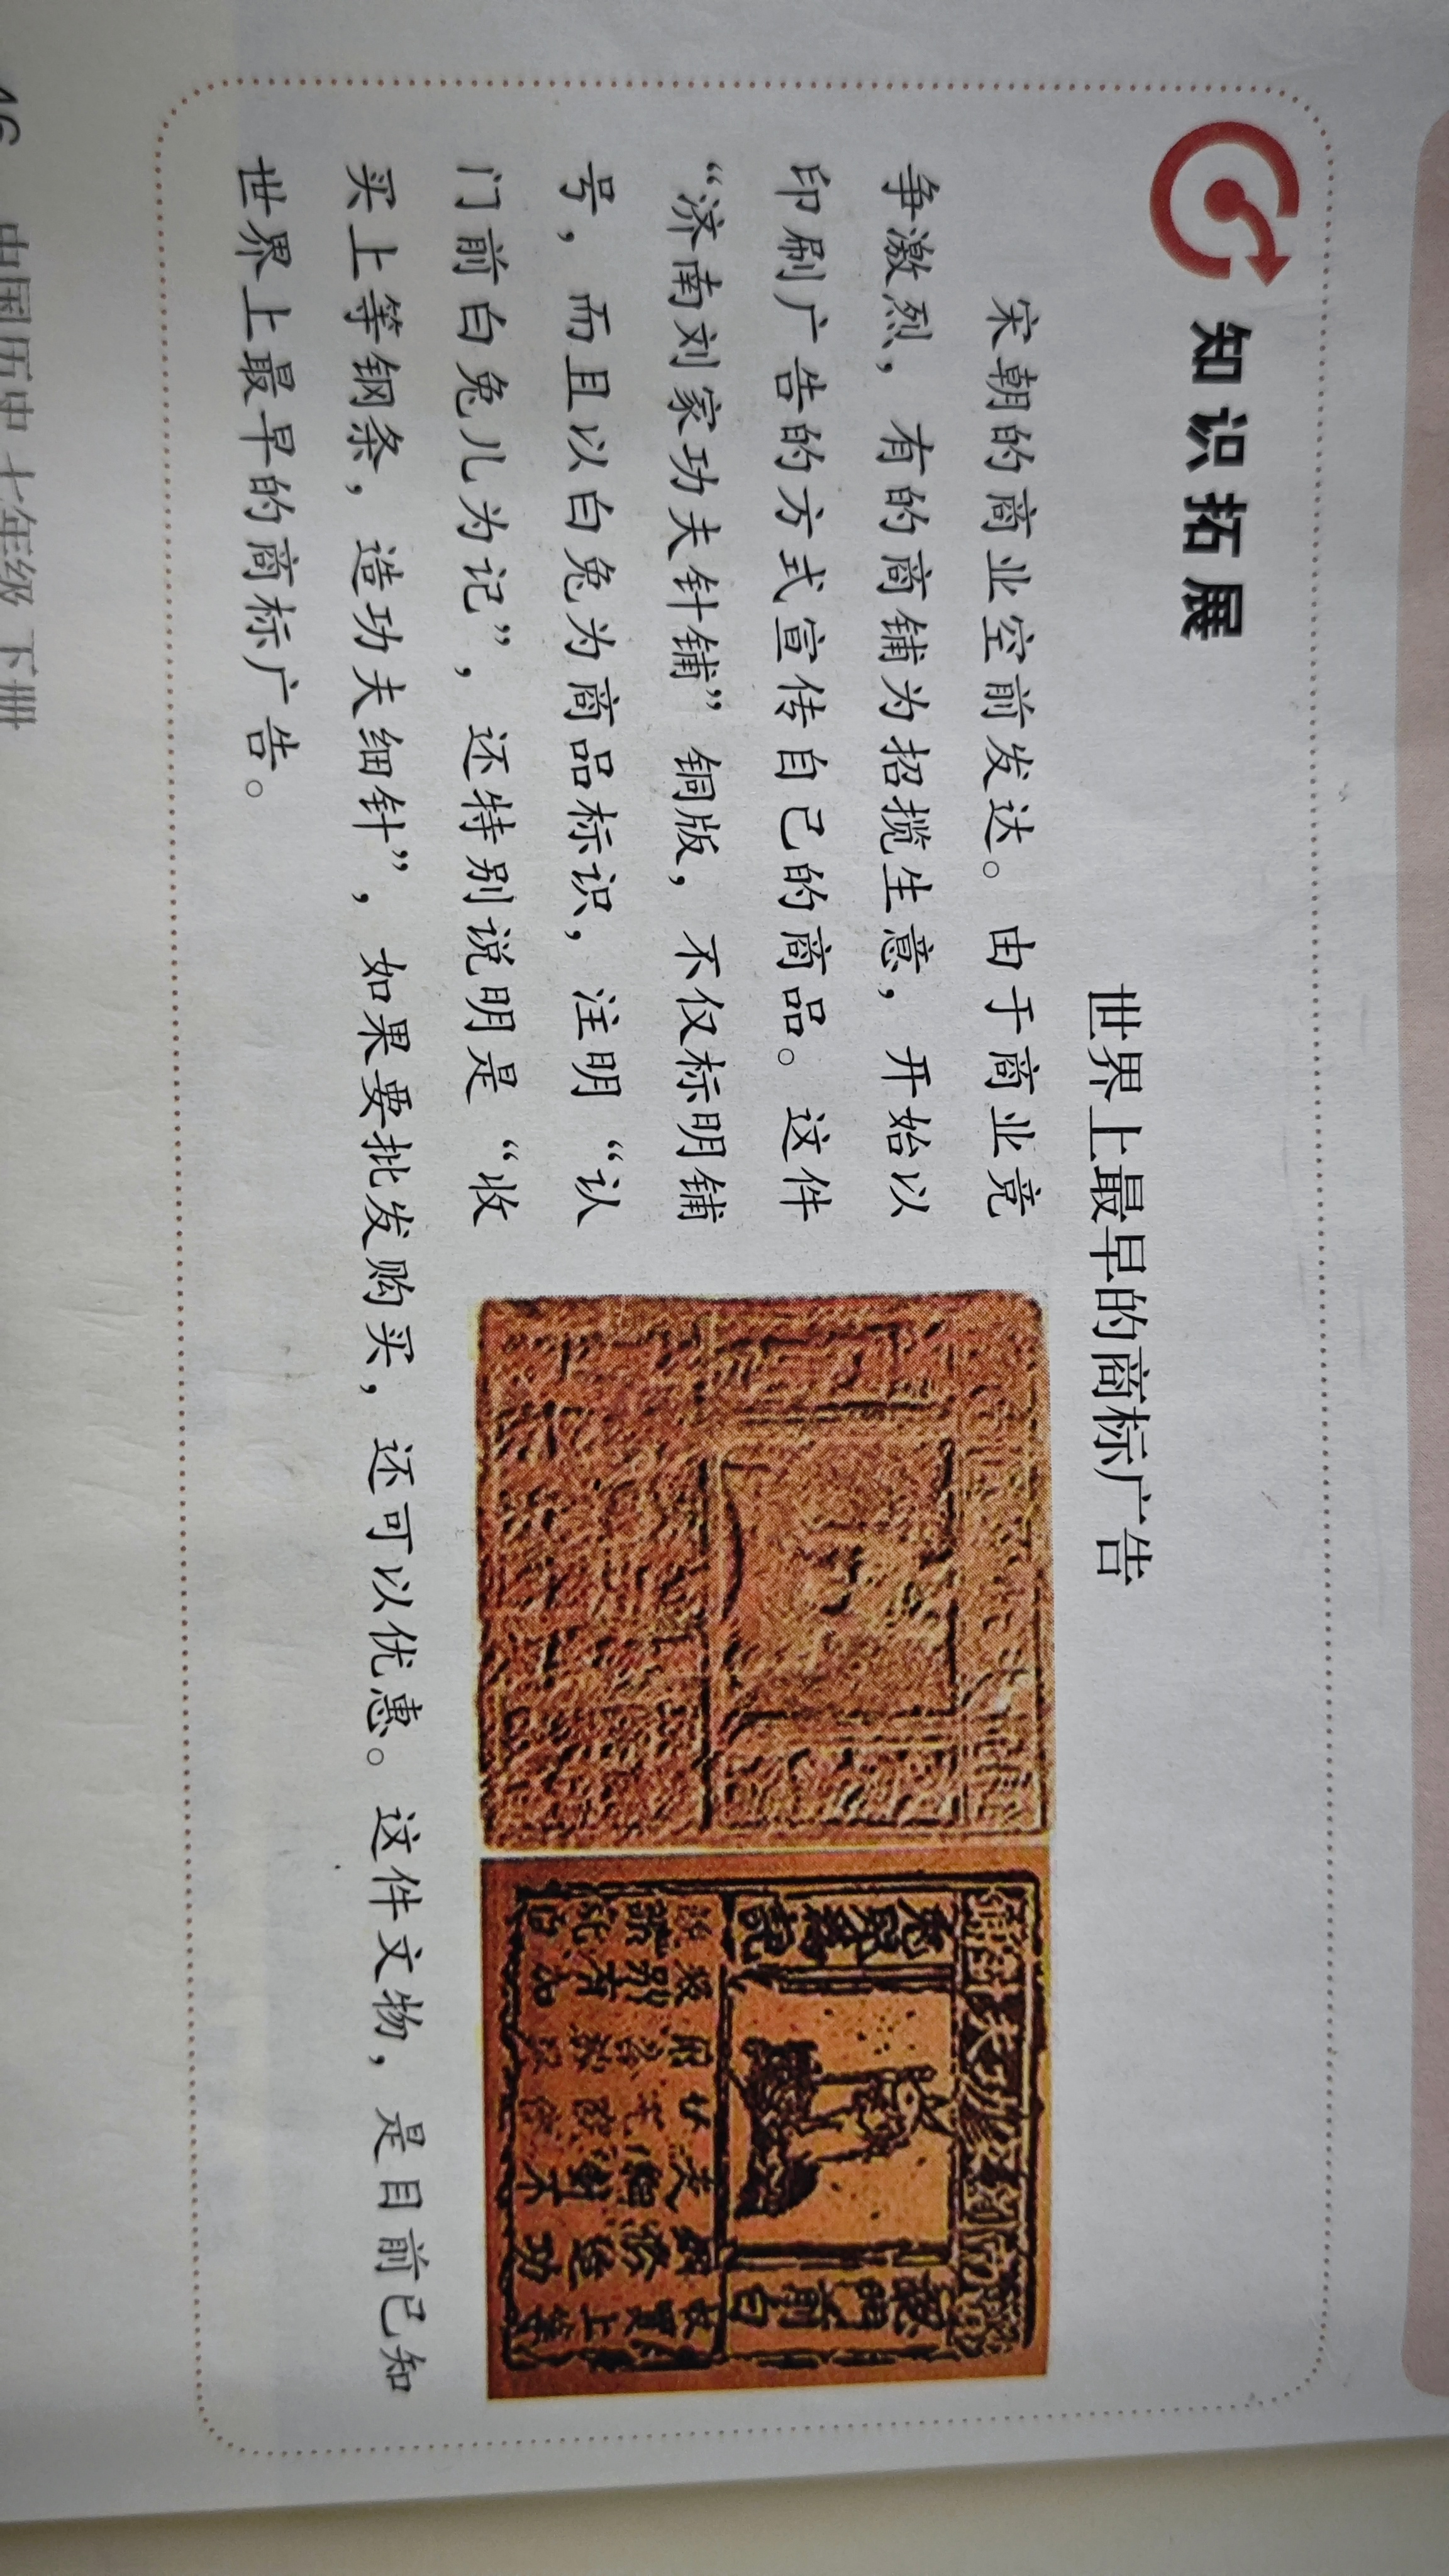 知识拓展
世界上最早的商标广告
宋朝的商业空前发达。由于商业竞
争激烈，有的商铺为招揽生意，开始以
印刷广告的方式宣传自己的商品。这件
“济南刘家功夫针铺”铜版，不仅标明铺
号，而且以白兔为商品标识，注明“认
门前白兔儿为记”，还特别说明是“收
买上等钢条，造功夫细针”，如果要批发购买，还可以优惠。这件文物，是目前已知
世界上最早的商标广告。
濟南劉家功夫針鋪
認門前白
兔兒為記
46 中国历史 七年级 下册